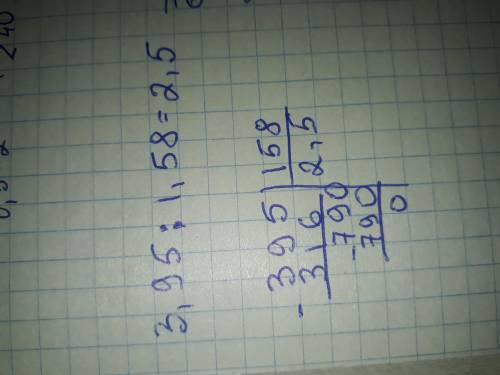 3,95 : 1,58 = 2,5
- 395 | 158
316 | 2,5
- 790
790
0